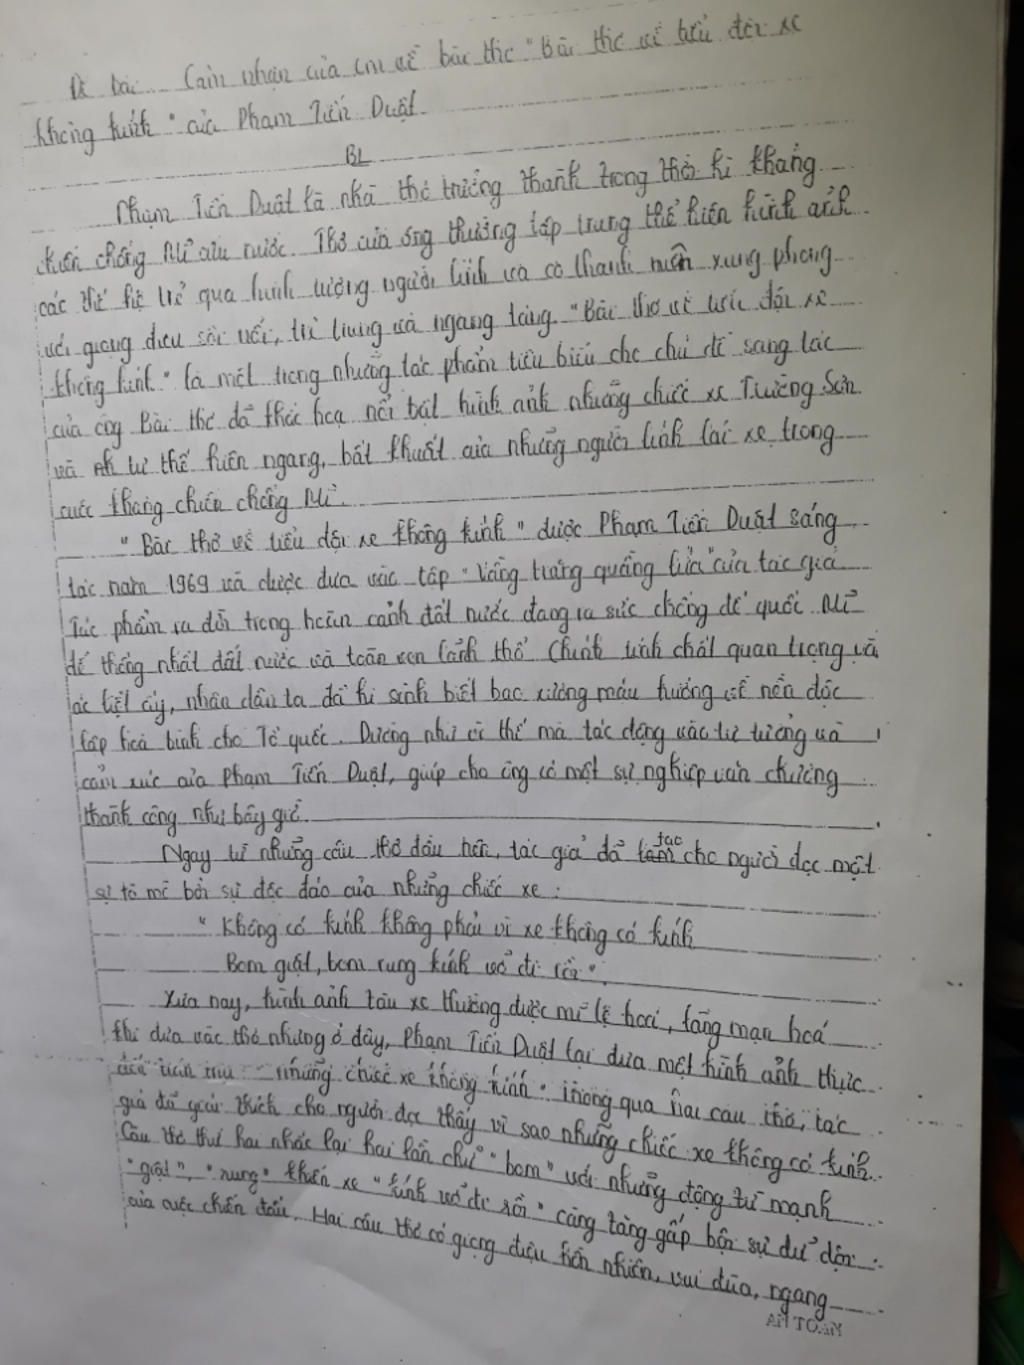 Đề bài: Cảm nhận của em về bài thơ "Bài thơ về tiểu đội xe
không kính" của Phạm Tiến Duật.
BL
Phạm Tiến Duật là nhà thơ trưởng thành trong thời kì kháng
chiến chống Mĩ cứu nước. Thơ của ông thường tập trung thể hiện hình ảnh
các thế hệ trẻ qua hình tượng người lính và cô thanh niên xung phong
với giọng điệu sôi nổi, trẻ trung và ngang tàng. "Bài thơ về tiểu đội xe
không kính" là một trong những tác phẩm tiêu biểu cho chủ đề sáng tác
của ông. Bài thơ đã khắc hoạ nổi bật hình ảnh những chiếc xe Trường Sơn
và tư thế hiên ngang, bất khuất của những người lính lái xe trong
cuộc kháng chiến chống Mĩ.
"Bài thơ về tiểu đội xe không kính" được Phạm Tiến Duật sáng
tác năm 1969 và được đưa vào tập "Vầng trăng quầng lửa" của tác giả
Tác phẩm ra đời trong hoàn cảnh đất nước đang ra sức chống đế quốc Mĩ
để thống nhất đất nước và toàn vẹn lãnh thổ. Chính tính chất quan trọng và
ác liệt ấy, nhân dân ta đã hi sinh biết bao xương máu hướng về nền độc
lập hoà bình cho Tổ quốc. Dường như vì thế mà tác động vào tư tưởng và
cảm xúc của Phạm Tiến Duật, giúp cho ông có một sự nghiệp văn chương
thành công như bây giờ.
Ngay từ những câu thơ đầu tiên, tác giả đã tạc cho người đọc một
sự tò mò bởi sự độc đáo của những chiếc xe:
"Không có kính không phải vì xe không có kính
Bom giật, bom rung kính vỡ đi rồi".
Xưa nay, hình ảnh tàu xe thường được mĩ lệ hoá, lãng mạn hoá
khi đưa vào thơ nhưng ở đây, Phạm Tiến Duật lại đưa một hình ảnh thực
những chiếc xe không kính. Thông qua hai câu thơ, tác
giả đã giải thích cho người đọc thấy vì sao những chiếc xe không có kính.
Câu thơ thứ hai nhắc lại hai lần chữ "bom" với những động từ mạnh
"giật", "rung" khiến xe "kính vỡ đi rồi" càng tăng gấp bội sự dữ dội
của cuộc chiến đấu. Hai câu thơ có giọng điệu hồn nhiên, vui đùa, ngang
AN TOÀN